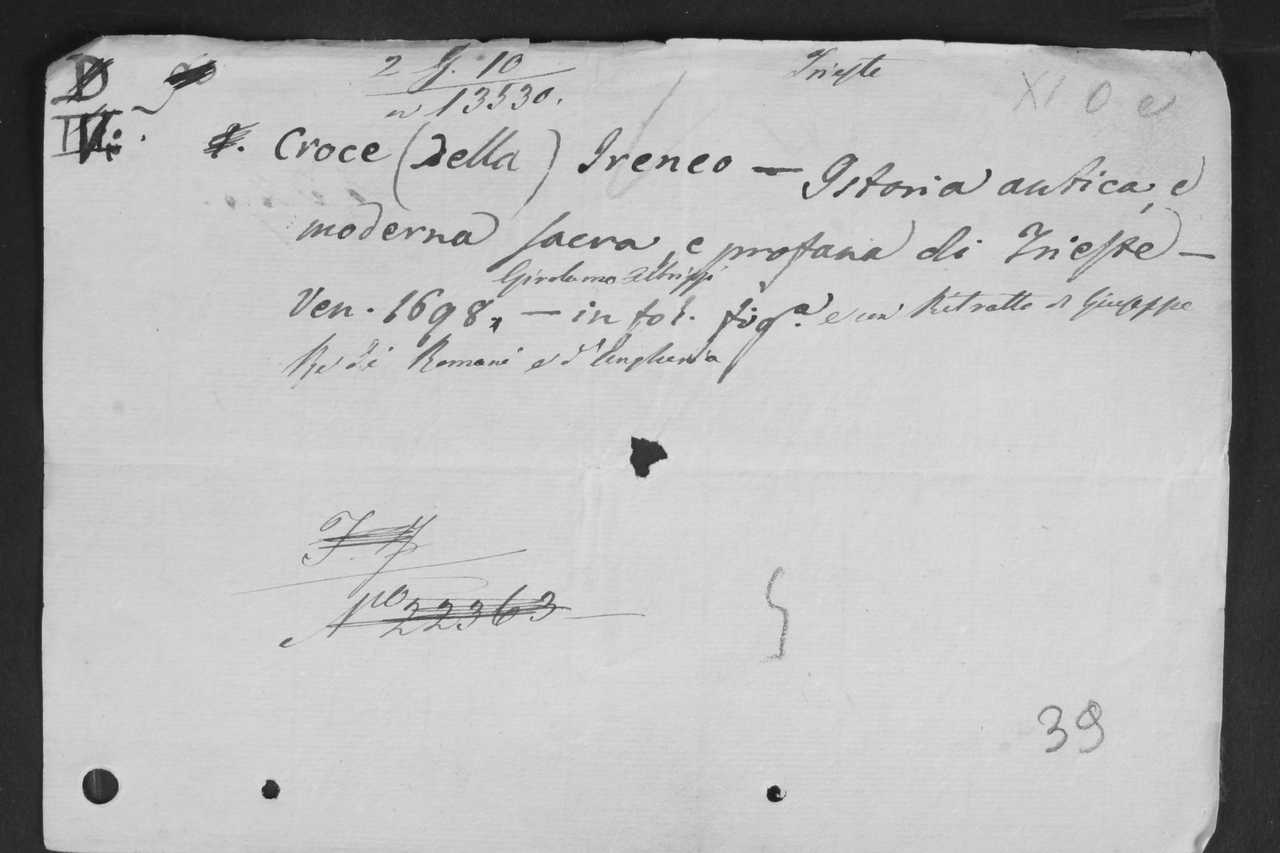 2 G. 10
n 13530.
Trieste
XI O e
Croce (Della) Ireneo — Istoria antica, e
moderna sacra e profana di Trieste —
Girolamo Albrizzi
Ven. 1698, — in fol. fig.a e un Ritratto di Giuseppe
Re de Romani e d'Ungheria
F. 7
No 22363
5
39